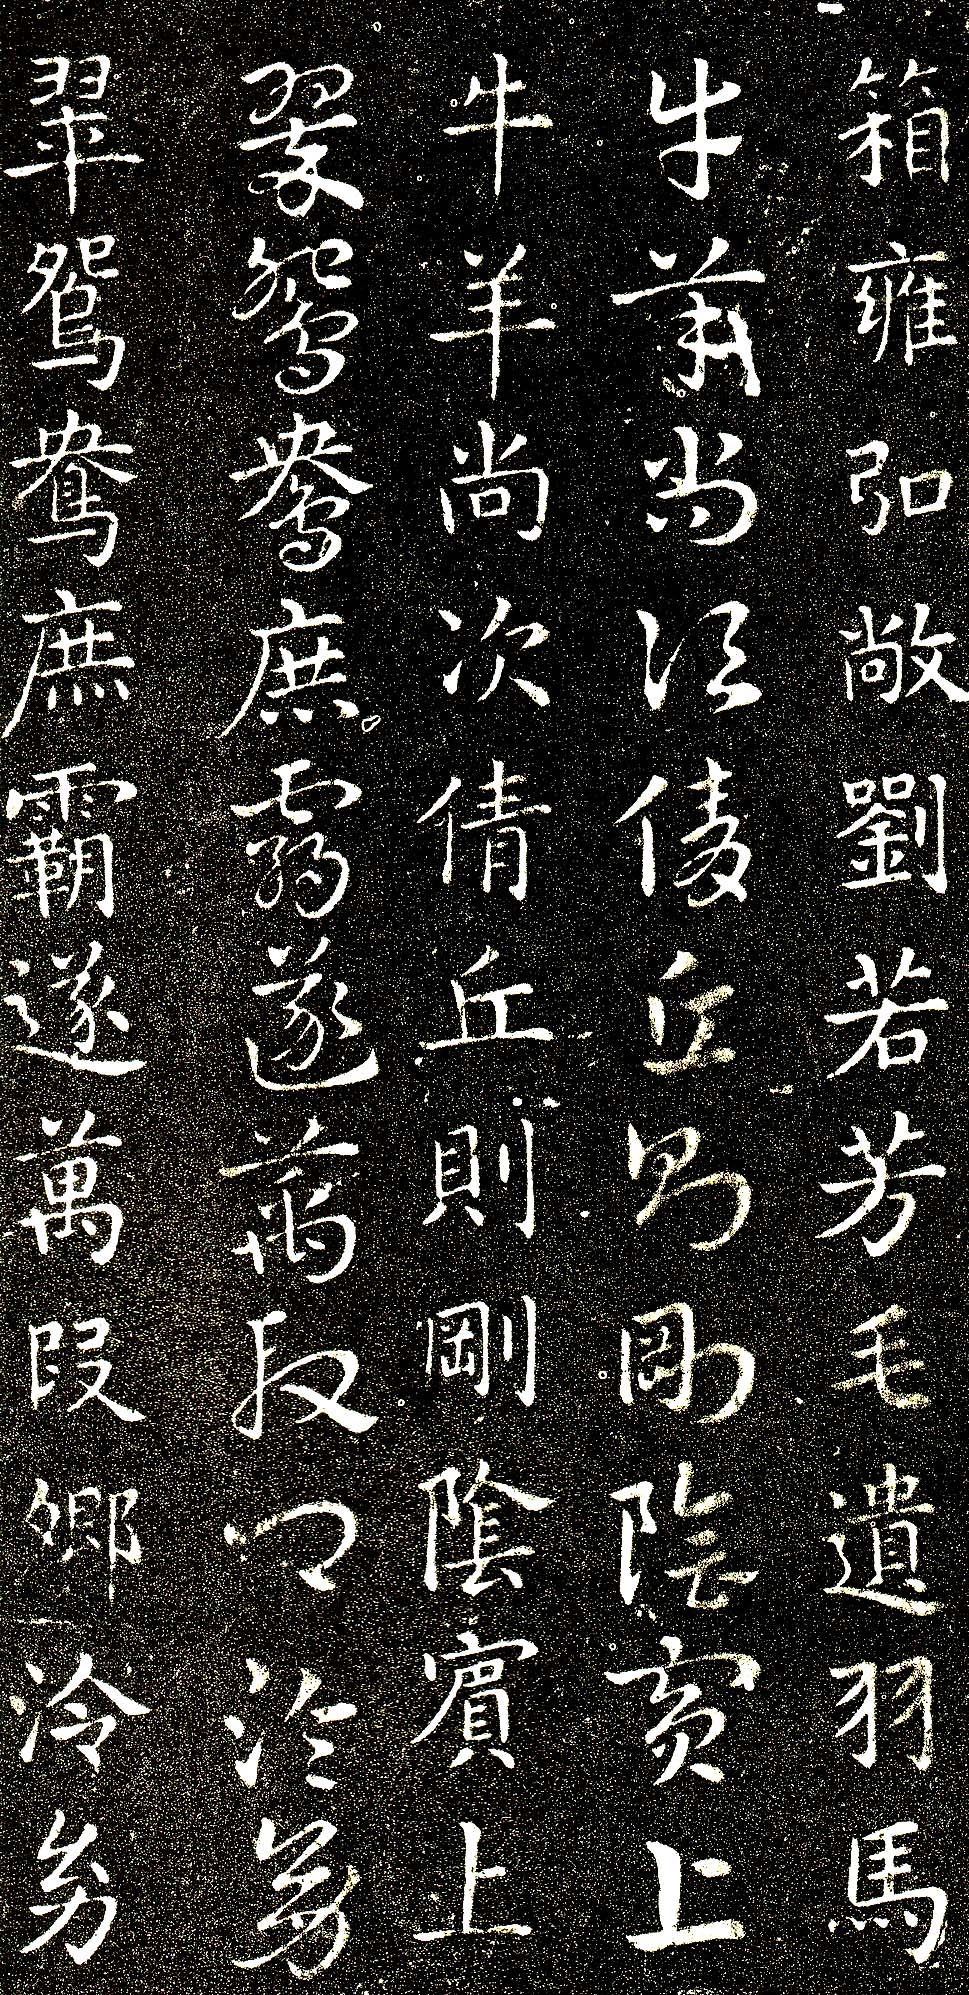 箱雍弘敞劉若芳毛遺羽馬
牛羊尚次倩丘則剛陰賓上
牛羊尚次倩丘則剛陰賓上
翠鴛鴦庶霸遂萬段卿泠幼
翠鴛鴦庶霸遂萬段卿泠幼